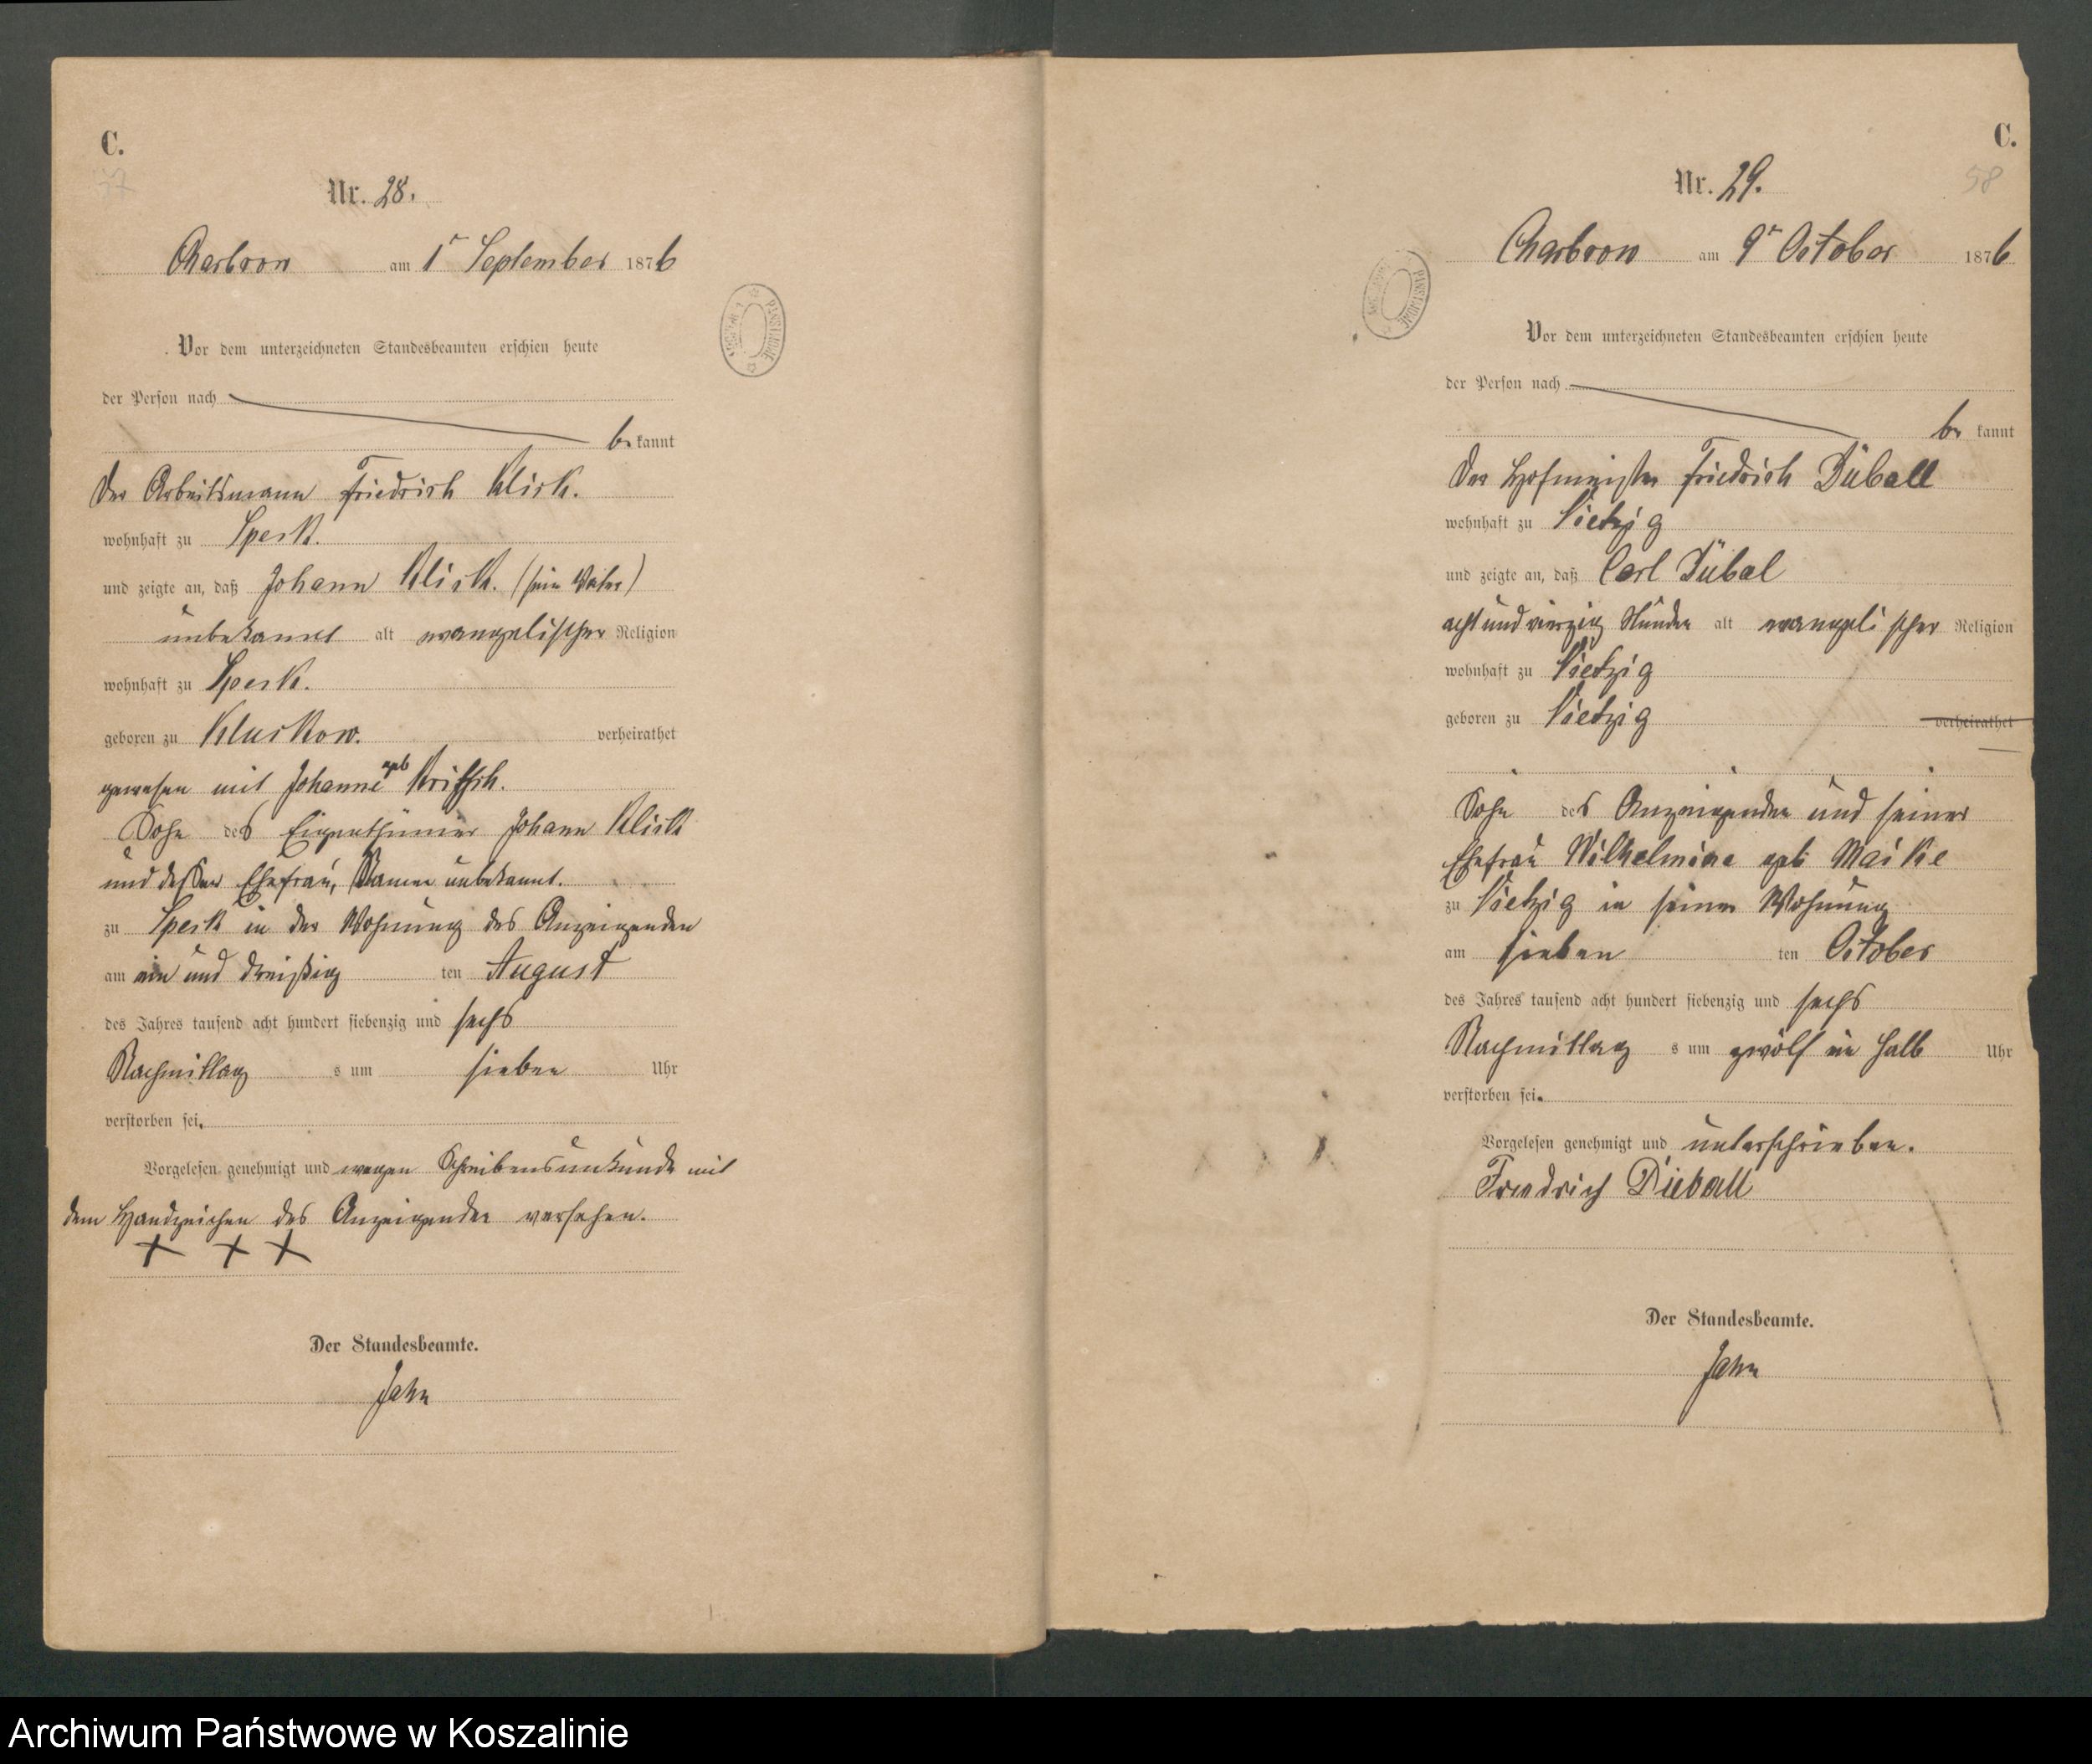 C.
57
Nr. 28.
Charbrow am 1r September 1876
Vor dem unterzeichneten Standesbeamten erschien heute
der Person nach
bekannt
der Arbeitsmann Friedrich Klick.
wohnhaft zu Speck.
und zeigte an, daß Johann Klick. (sein Vater)
unbekannt alt evangelischer Religion
wohnhaft zu Speck.
geboren zu Kluckow. verheirathet
gewesen mit Johanne geb
Sohn des Eigenthümer Johann Klick
und dessen Ehefrau, Namen unbekannt.
zu Speck in der Wohnung des Anzeigenden
am ein und dreißig ten August
des Jahres tausend acht hundert siebenzig und sechs
Nachmittag s um sieben Uhr
verstorben sei.
Vorgelesen genehmigt und wegen Schreibensunkunde mit
dem Handzeichen des Anzeigenden versehen.
+ + +
Der Standesbeamte.
Jahn
C.
58
Nr. 29.
Charbrow am 9r October 1876
Vor dem unterzeichneten Standesbeamten erschien heute
der Person nach
bekannt
der Hofmeister Friedrich Düball
wohnhaft zu Vietzig
und zeigte an, daß Carl Dübal
acht und vierzig Stunden alt evangelischer Religion
wohnhaft zu Vietzig
geboren zu Vietzig verheirathet
Sohn des Anzeigenden und seiner
Ehefrau Wilhelmine geb Maike
zu Vietzig in seiner Wohnung
am sieben ten October
des Jahres tausend acht hundert siebenzig und sechs
Nachmittag s um zwölf ein halb Uhr
verstorben sei.
Vorgelesen genehmigt und unterschrieben.
Friedrich Dieball
Der Standesbeamte.
Jahn
Archiwum Państwowe w Koszalinie